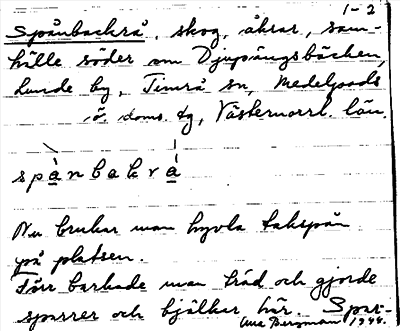 1-2
Spånbackrå, skog, åkrar, sam-
hälle söder om Djupängsbäcken,
Lunde by, Timrå sn, Medelpads
ö. doms. tg, Västernorrl. län.
spànbakrá
Nu brukar man hyvla takspån
på platsen.
Förr barkade man träd och gjorde
sparrer och bjälkar här. Spar-
Åke Bergman 1944.